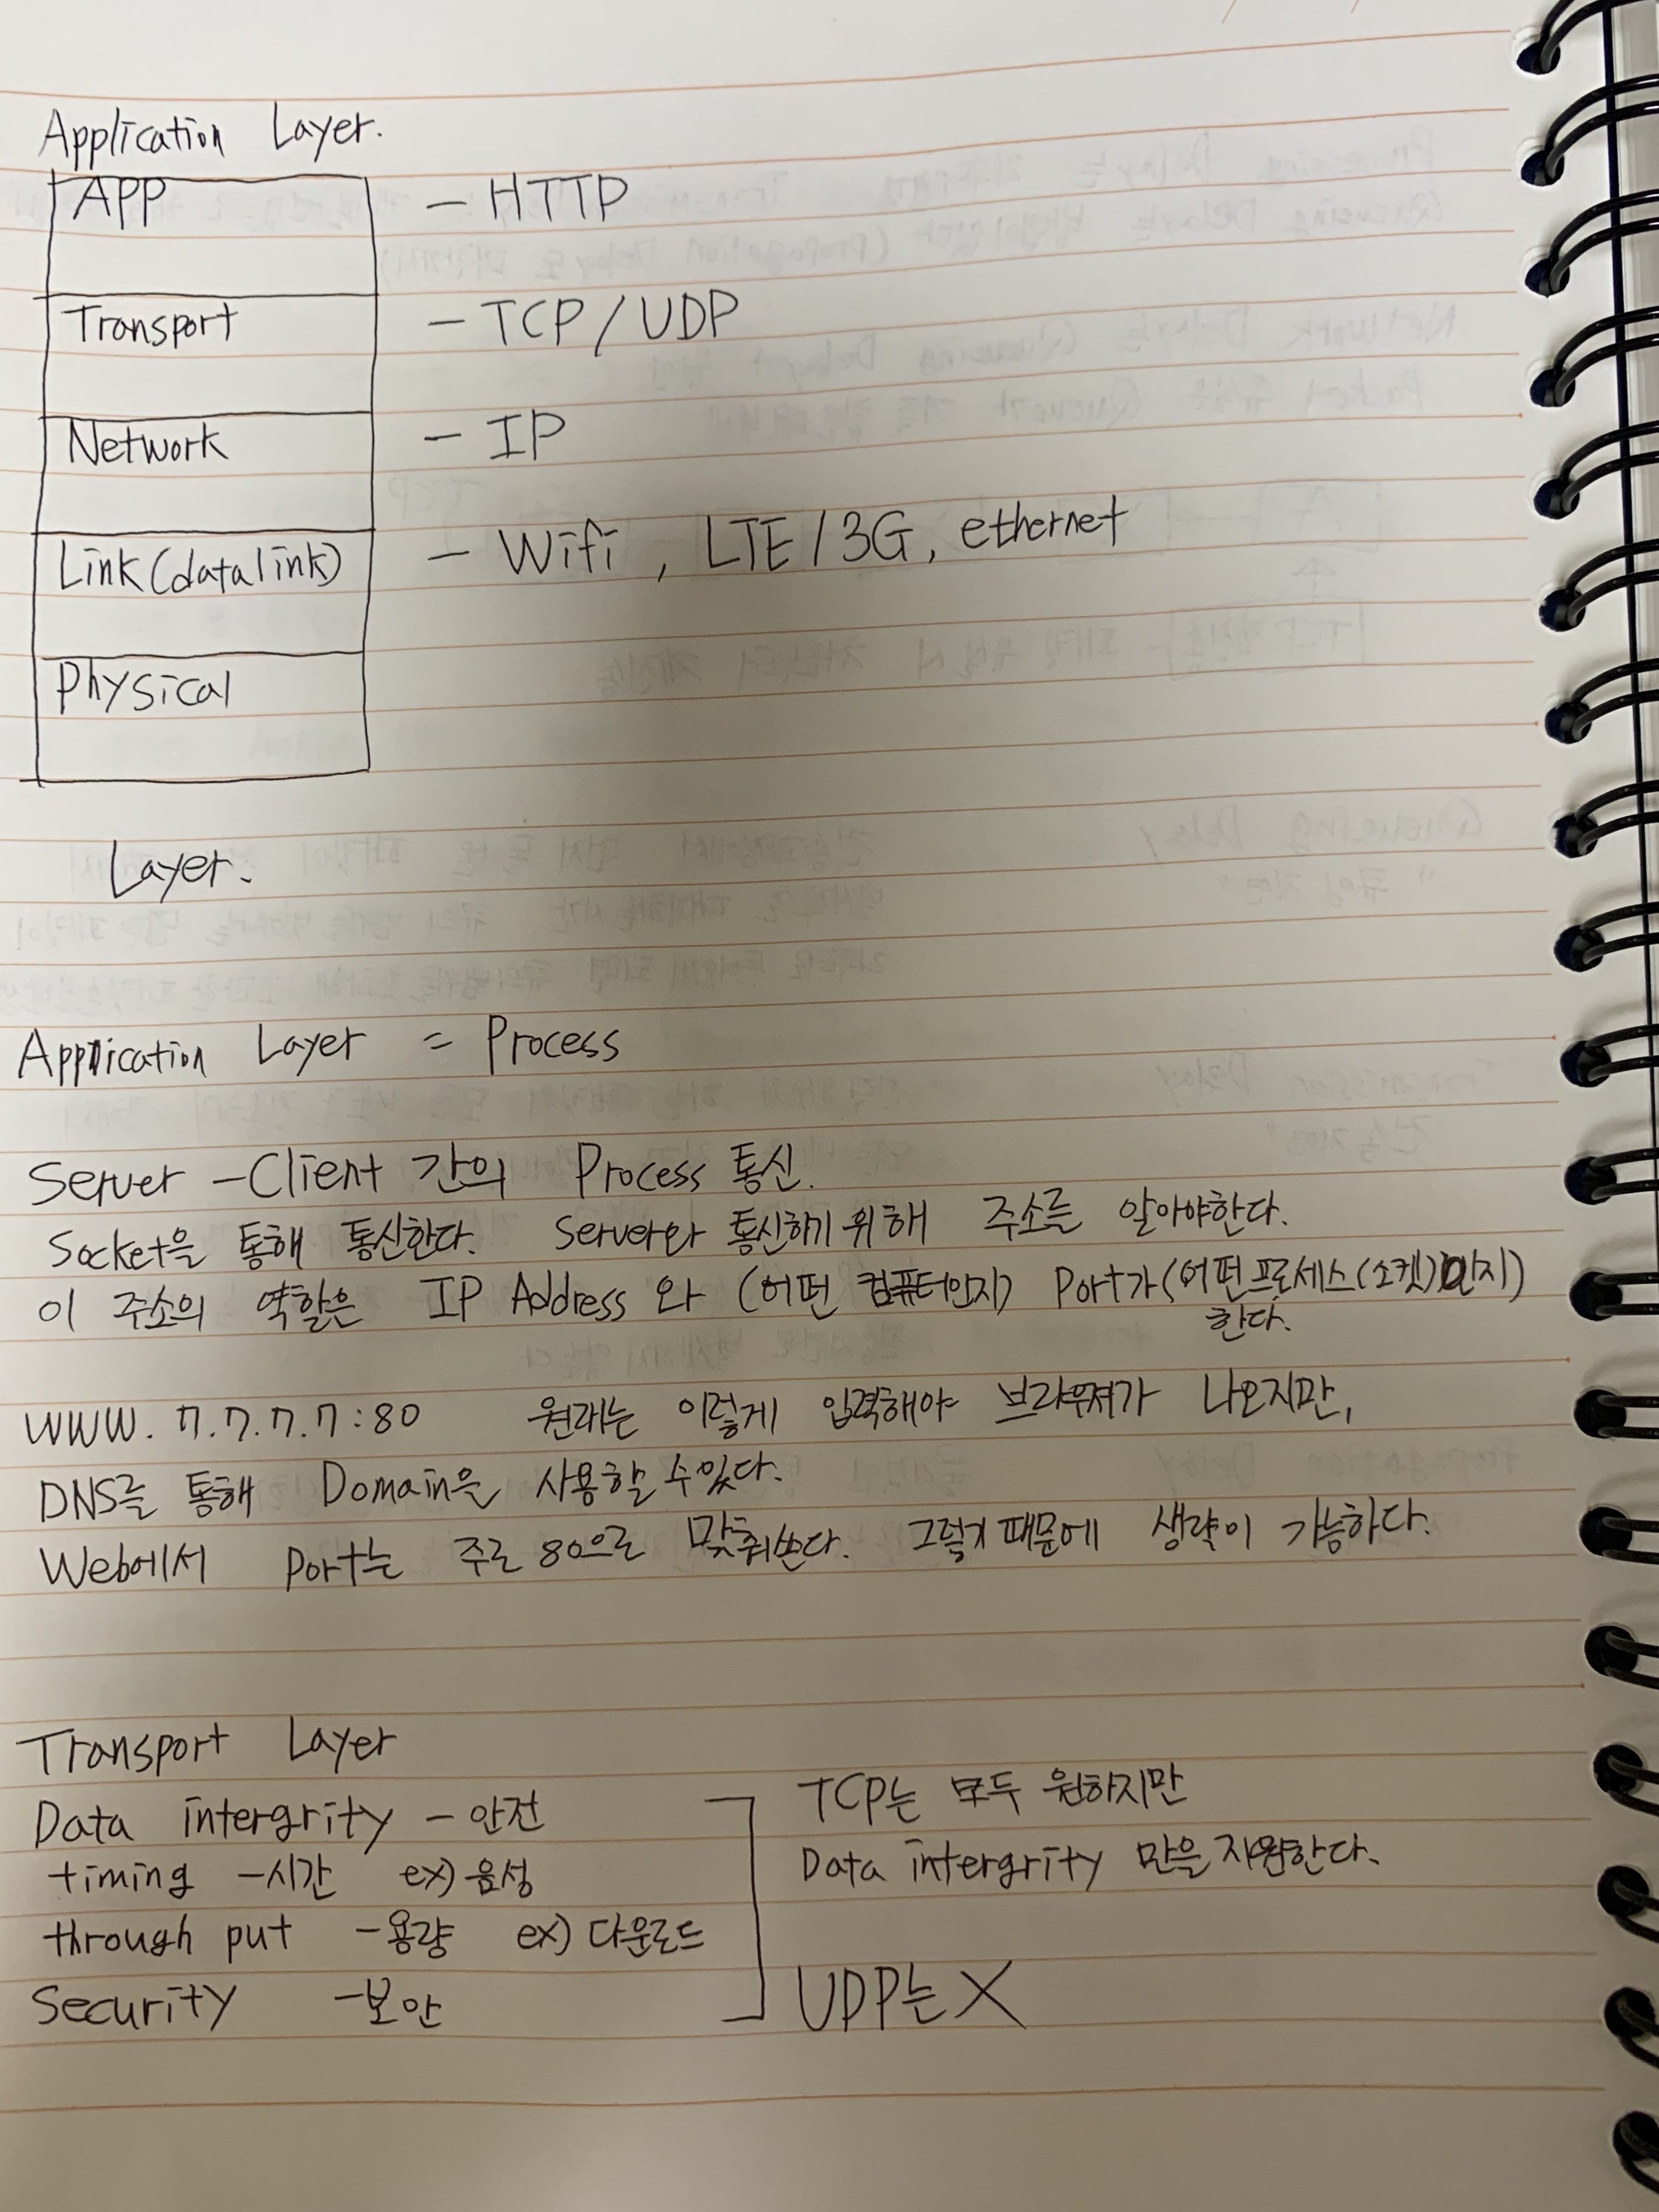 Application Layer.
APP - HTTP
Transport - TCP / UDP
Network - IP
Link(datalink) - Wifi , LTE / 3G, ethernet
Physical
Layer.
Application Layer = Process
Server - Client 간의 Process 통신.
Socket을 통해 통신한다. Server와 통신하기 위해 주소를 알아야한다.
이 주소의 역할은 IP Address 와 (어떤 컴퓨터인지) Port가 (어떤 프로세스(소켓)인지)
한다.
WWW. 7.7.7.7:80 원래는 이렇게 입력해야 브라우져가 나오지만,
DNS를 통해 Domain을 사용할 수 있다.
Web에서 Port는 주로 80으로 맞춰쓴다. 그렇기 때문에 생략이 가능하다.
Transport Layer
Data intergrity - 안전
timing - 시간 ex) 음성
through put - 용량 ex) 다운로드
Security - 보안
TCP는 모두 원하지만
Data intergrity 만을 지원한다.
UDP는 X